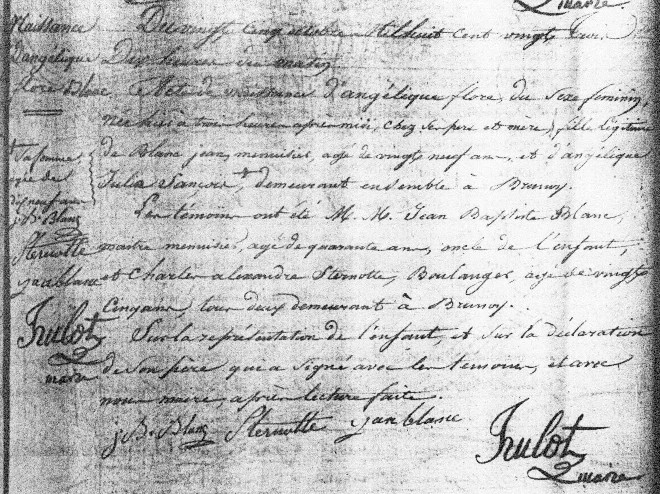 maire.
Naissance
d'angélique
flore Blanc
Du vingt cinq octobre Mil huit cent vingt
Dix heures du matin
Acte de naissance d'angélique flore, du Sexe feminin,
née hier à trois heures après midi, chez ses pere et mère, fille légitime
de Blanc jean, menuisier, agé de vingt neuf ans, et d'angélique
Julie demeurant ensemble à Brunoy.
Les témoins ont été M. M. Jean Baptiste Blanc,
maitre menuisier, agé de quarante ans, oncle de l'enfant,
et Charles alexandre Sternotte, Boulanger, agé de vingt
Cinq ans, tous deux demeurant à Brunoy.
Sur la représentation de l'enfant, et sur la déclaration
de son père qui a signé avec les temoins, et avec
nous maire, après lecture faite.
j B. Blanc Sternotte jan blanc
Sa femme
agée de
dix neuf ans
j. B. Blanc
Sternotte
jan blanc
Hulot
maire
Hulot
maire